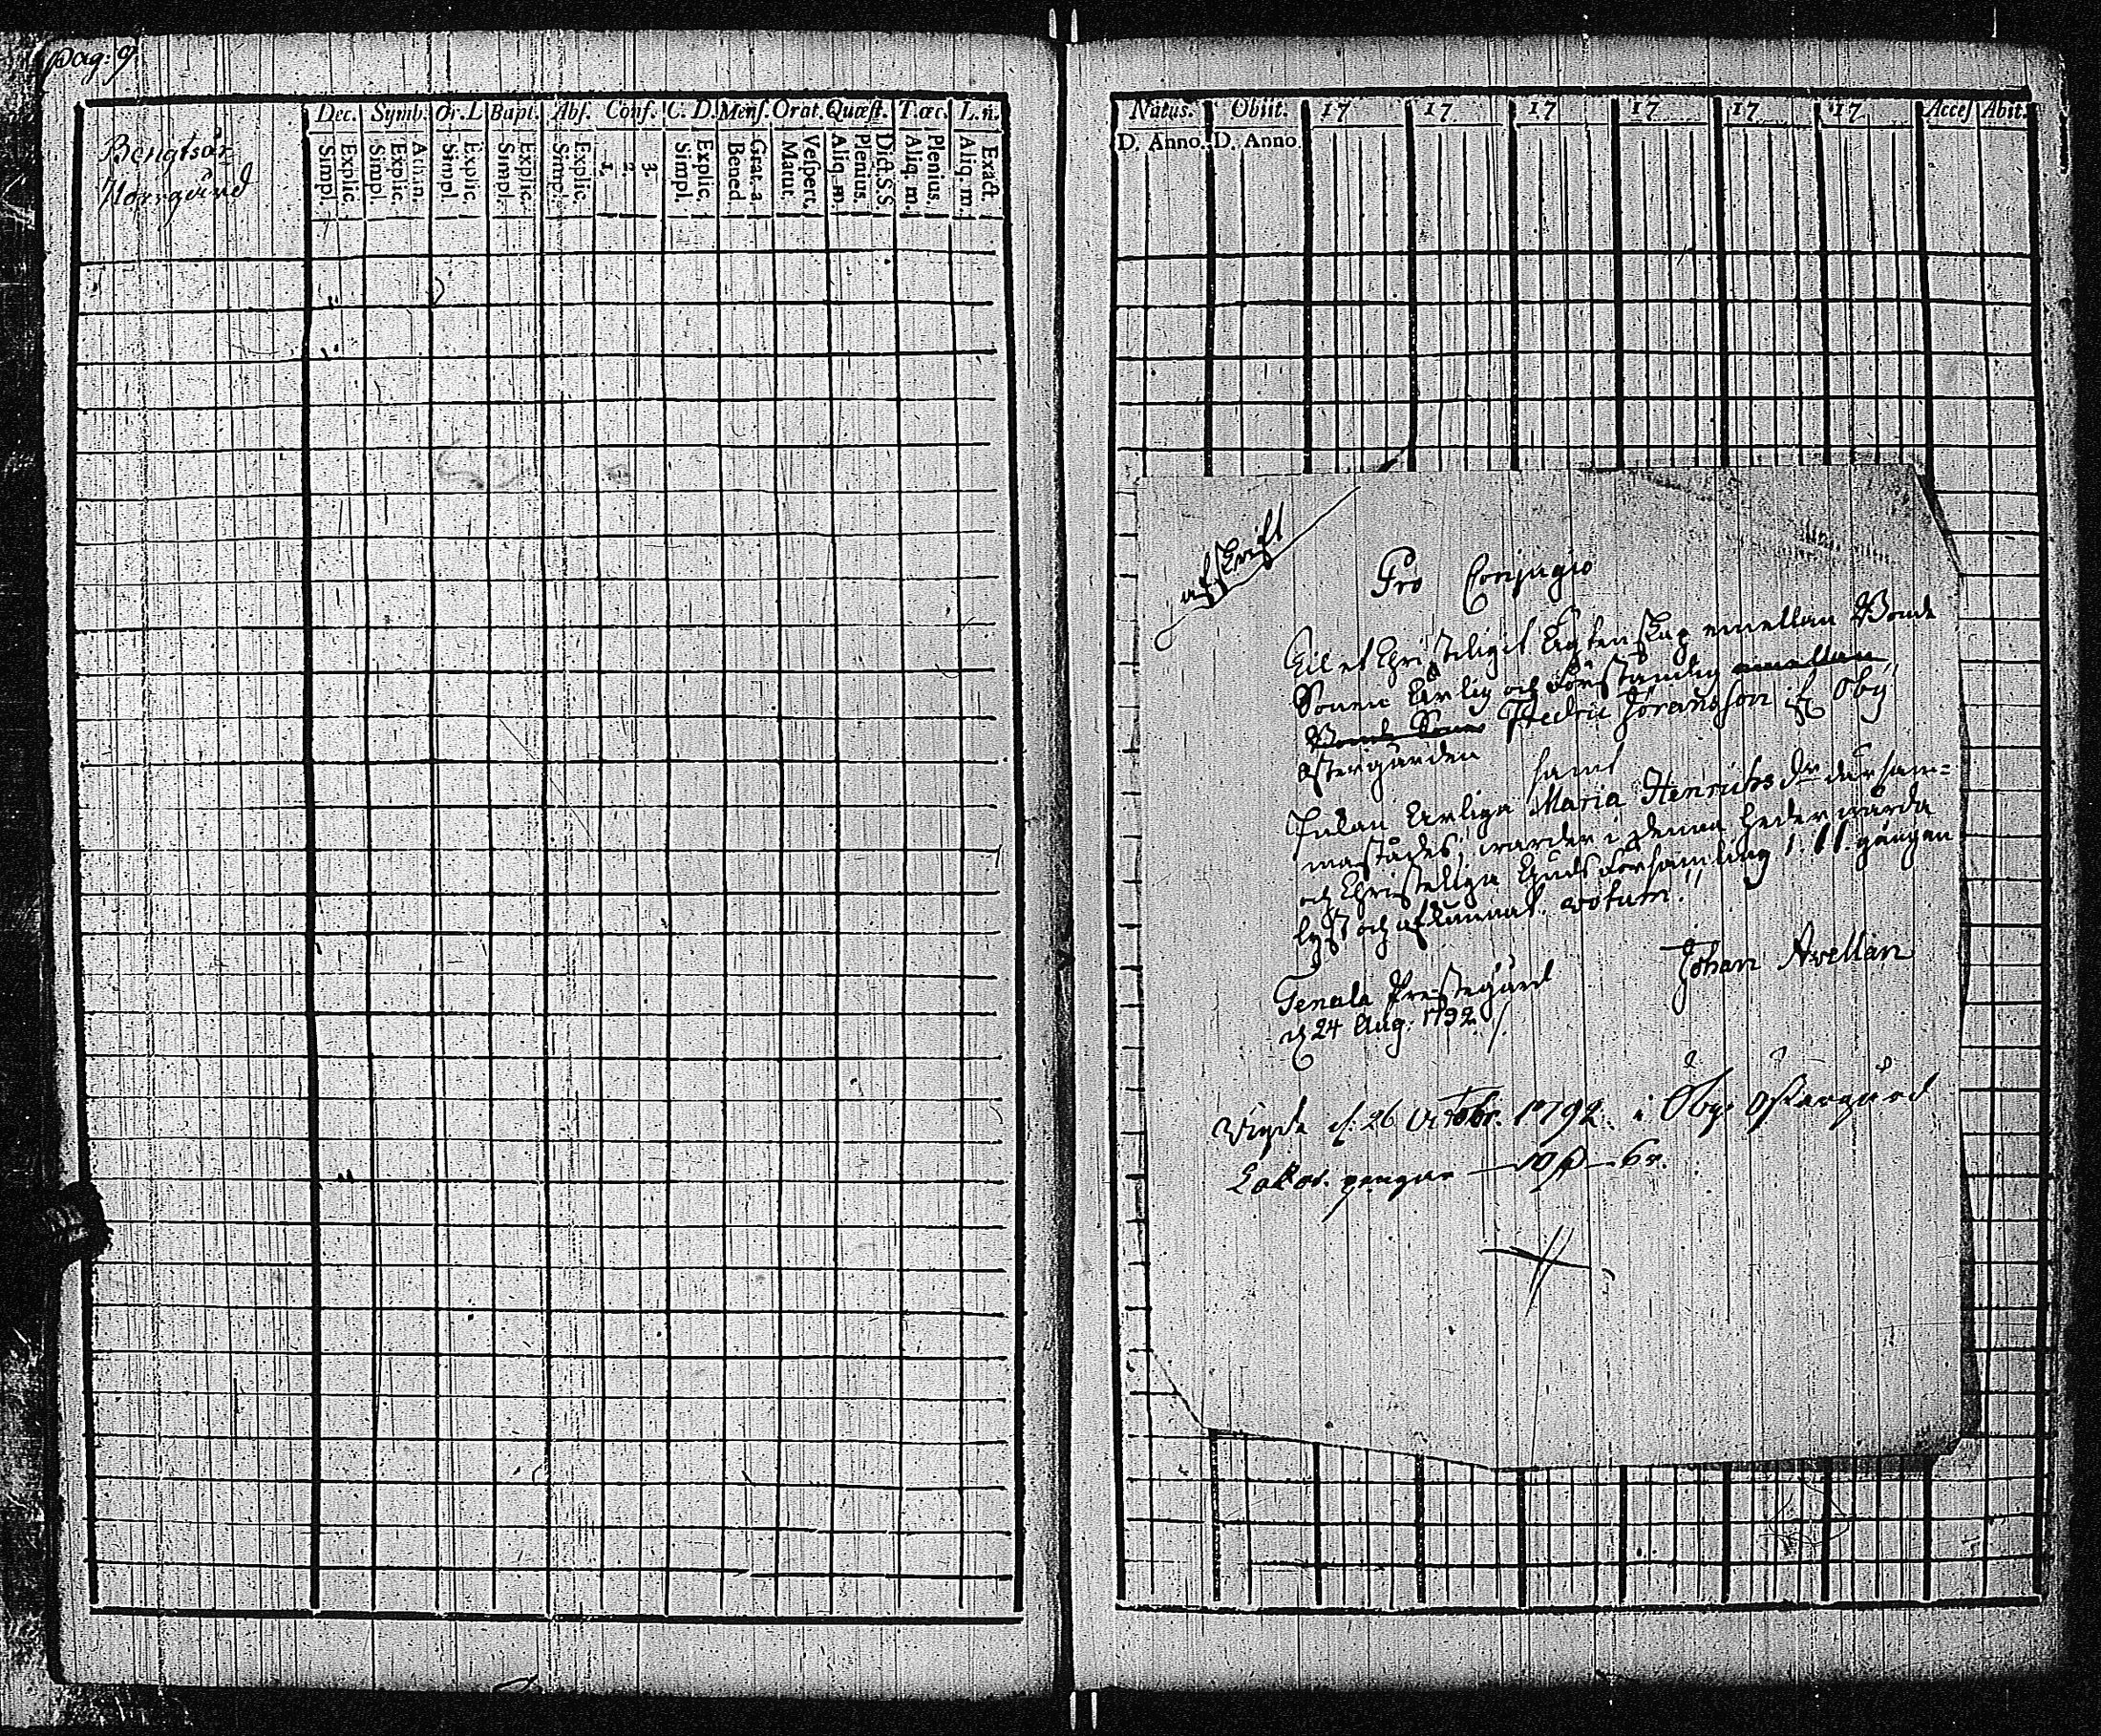 Pag: 9
Bengtsår
Norrgård
Dec. Symb. Or. L Bapt. Abs. Conf. C. D. Mens. Orat. Quæst. T. œc. L. n.
Simpl. Explic. Simpl. Explic. Athan. Simpl. Explic. Simpl. Explic. Simpl. Explic. 1. 2. 3. Simpl. Explic. Bened. Grat. a. Matut. Vespert. Aliq. m. Plenius. Dict. S. S. Aliq. m. Plenius. Aliq. m. Exact.
Natus. Obiit. 17 17 17 17 17 17 Acces Abit.
D. Anno. D. Anno.
afskrift
Pro Conjugio
Til et Christeligit Ägtenskap emellan Bonde
Sonen Ärlig och Förståndig emellan
Bonde Sonen Fredric Jöransson if. Öby
Östergården samt
Pigan Ärliga Maria Henrichs dr därsam=
mastädes, warder i denna hederwärda
och Christeliga Guds Församling 1. II. gången
lyst och afkunnat. votum!!
Johan Avellan
Tenala Prestegård
d. 24 Aug: 1792
Vigde d. 26 Octobr. 1792. i Öby Östergård
Lakar. pengar — 10 ß — 6 r.